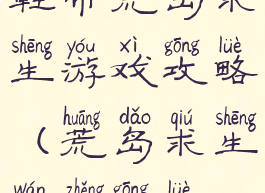 鞋带荒岛求
shēng yóu xì gōng lüè
生游戏攻略
huāng dǎo qiú shēng
(荒岛求生
wán zhěng gōng lüè